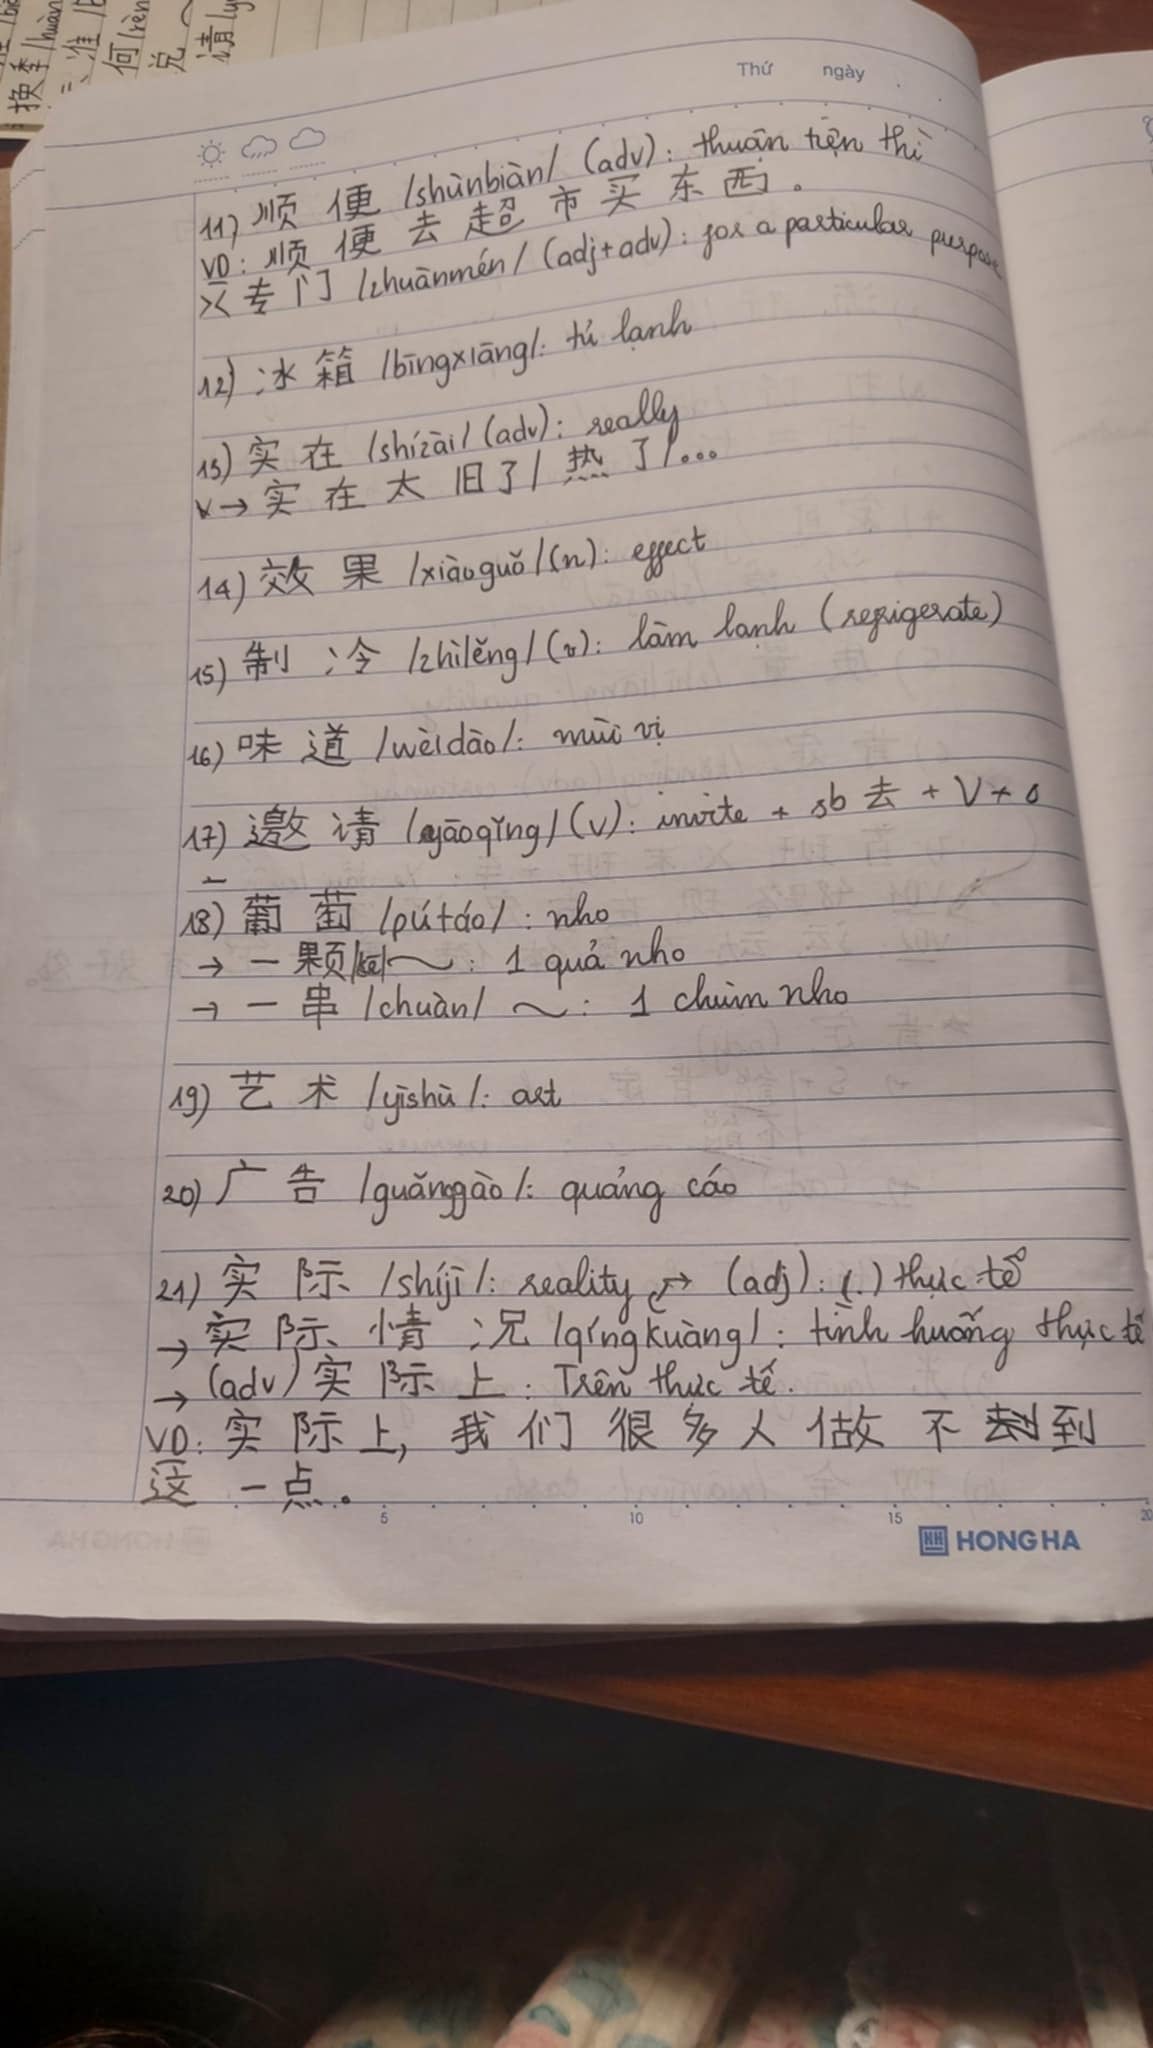 换季 /huàn
准 /
何 /rèn
兑
请 /y
Thứ ngày
11) 顺便 /shùnbiàn/ (adv): thuận tiện thì
VD: 顺便去超市买东西。
>< 专门 /zhuānmén/ (adj+adv): for a particular purpose
12) 冰箱 /bīngxiāng/: tủ lạnh
13) 实在 /shízài/ (adv): really
V→ 实在太旧了/ 热了/...
14) 效果 /xiàoguǒ/ (n): effect
15) 制冷 /zhìlěng/ (v): làm lạnh (refrigerate)
16) 味道 /wèidào/: mùi vị
17) 邀请 /yāoqǐng/ (v): invite + sb 去 + V + o
18) 葡萄 /pútáo/: nho
→ 一颗 /kē/ ~: 1 quả nho
→ 一串 /chuàn/ ~: 1 chùm nho
19) 艺术 /yìshù/: art
20) 广告 /guǎnggào/: quảng cáo
21) 实际 /shíjì/: reality → (adj): (.) thực tế
→ 实际情况 /qíngkuàng/: tình huống thực tế
→ (adv) 实际上: Trên thực tế.
VD: 实际上, 我们很多人做不到
这一点。
5 10 15 20
HONG HA